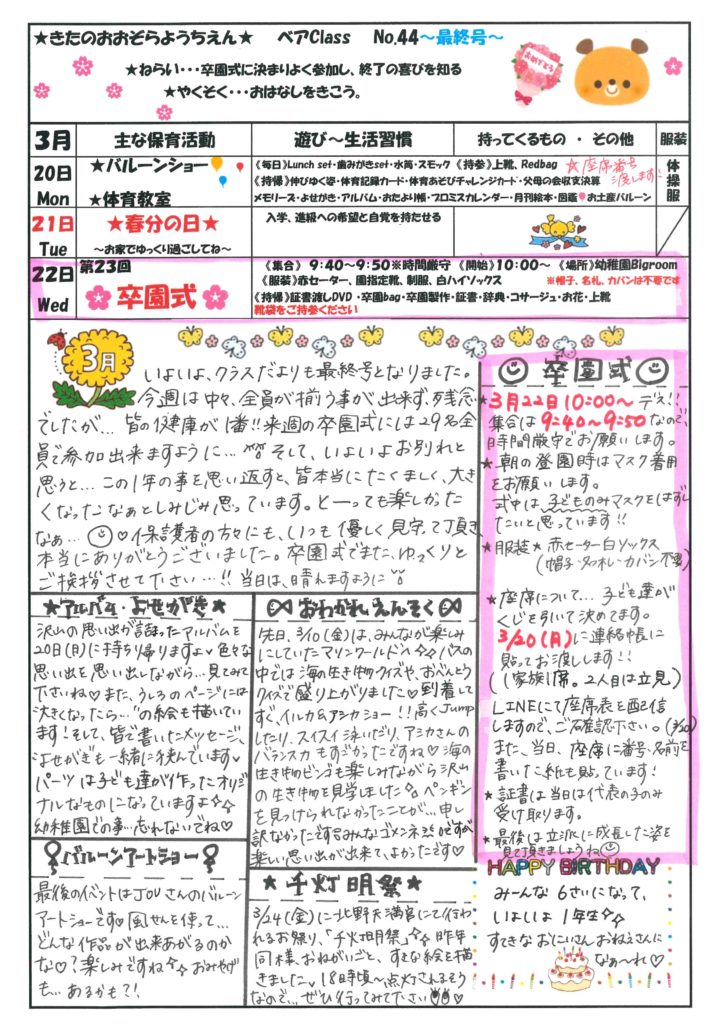 ★きたのおおぞらようちえん★ ベアClass No.44～最終号～
おめでとう
★ねらい・・・卒園式に決まりよく参加し、終了の喜びを知る
★やくそく・・・おはなしをきこう。
3月 主な保育活動 遊び～生活習慣 持ってくるもの ・ その他 服装
20日 Mon
★バルーンショー
★体育教室
《毎日》Lunch set・歯みがきset・水筒・スモック 《持参》上靴、Redbag ☆座席番号渡します!
《持帰》伸びゆく姿・体育記録カード・体育あそびチャレンジカード・父母の会収支決算
メモリーズ・よせがき・アルバム・おたより帳・プロミスカレンダー・月刊絵本・図鑑 お土産バルーン
体操服
21日 Tue
★春分の日★
～お家でゆっくり過ごしてね～
入学、進級への希望と自覚を持たせる
22日 Wed
第23回
卒園式
《集合》 9:40～9:50※時間厳守 《開始》10:00～ 《場所》幼稚園Bigroom
《服装》赤セーター、園指定靴、制服、白ハイソックス ※帽子、名札、カバンは不要です
《持帰》証書渡しDVD ・卒園bag・卒園製作・証書・辞典・コサージュ・お花・上靴
靴袋をご持参ください
3月
いよいよ、クラスだよりも最終号となりました。
今週は中々、全員が揃う事が出来ず、残念
でしたが… 皆の健康が1番!!来週の卒園式には29名全
員で参加出来ますように… そして、いよいよお別れと
思うと… この1年の事を思い返すと、皆本当にたくましく、大き
くなったなぁとしみじみ思っています。と一っても楽しかった
なぁ… ♡保護者の方々にも、いつも優しく見守って頂き
本当にありがとうございました。卒園式でまた、ゆっくりと
ご挨拶させて下さい…!! 当日は、晴れますように
卒園式
★3月22日10:00～デス!!
集合は9:40～9:50なので、
時間厳守でお願いします。
★朝の登園時はマスク着用
をお願いします。
式中は子どものみマスクをはずし
たいと思っています!!
★服装★赤セーター白ソックス
(帽子・名札・カバン不要)
★座席について… 子ども達が
くじを引いて決めてます。
3/20(月)に連絡帳に
貼ってお渡しします!!
(1家族1席。2人目は立見)
LINEにて座席表を配信
しますので、ご確認下さい。(3/20)
また、当日、座席に番号・名前を
書いた紙も貼っています!
★証書は当日は代表の子のみ
受け取ります。
★最後は立派に成長した姿を
見て頂きましょうね
★アルバム・よせがき★
沢山の思い出が詰まったアルバムを
20日(月)に持ち帰りますよ 色々な
思い出を思い出しながら… 見てみて
下さいね♡また、うしろのページには
"大きくなったら…"の絵も描いてい
ます!そして、皆で書いたメッセージ、
よせがきも一緒に挟んでいます♡
パーツは子ども達が作ったオリジ
ナルなものになっていますよ☆☆
幼稚園での事…忘れないでね♡
おわかれえんそく
先日、3/10(金)は、みんなが楽しみ
にしていたマリンワールドへ☆☆バスの
中では海の生き物クイズや、おべんとう
クイズで盛り上がりました♡到着して
すぐ、イルカ&アシカショー!!高くJump
したり、スイスイ泳いだり、アシカさんの
バランス力もすごかったですね♡海の
生き物ビンゴも楽しみながら沢山
の生き物を見学しました ペンギン
を見つけられなかったことが…申し
訳なかったです みんなゴメンネ ですが
楽しい思い出が出来て、よかったです♡
バルーンアートショー
最後のイベントはJOUさんのバルーン
アートショーです!風せんを使って…
どんな作品が出来あがるのか
な♡?楽しみですね☆☆おみやげ
も…あるかも?!
★千灯明祭★
3/24(金)に北野天満宮にて行わ
れるお祭り、「千灯明祭」☆☆昨年
同様、おねがいごと、すてきな絵を描
きました。18時頃～点灯されるそう
なので… ぜひ行ってみて下さい♡
HAPPY BIRTHDAY
みーんな 6さいになって、
いよいよ 1年生☆☆
すてきな おにいさん おねえさんに
なぁ～れ♡